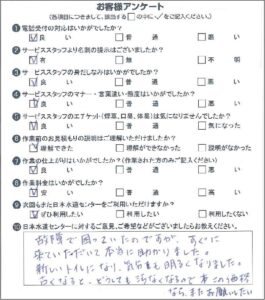 お客様アンケート
(各項目につきまして、該当する□の中に✓をご記入ください。)
❶電話受付の対応はいかがでしたか?
☑良い □普通 □悪い
❷サービススタッフより名刺の提示はございましたか?
☑有 □無 □不明
❸サービススタッフの身だしなみはいかがでしたか?
☑良い □普通 □悪い
❹サービススタッフのマナー・言葉遣い・態度はいかがでしたか?
☑良い □普通 □悪い
❺サービススタッフのエチケット(煙草、口臭、体臭)は気になりませんでしたか?
☑良い □普通 □気になった
❻作業前のお見積もりの説明はご理解いただけましたか?
☑理解できた □理解ができなかった □説明がなかった
❼作業の仕上がりはいかがでしたか?(作業された方のみご記入ください)
☑良い □普通 □悪い
❽作業料金はいかがでしたか?
□安い ☑普通 □高い
❾次回もまた日本水道センターをご利用いただけますか?
☑ぜひ利用したい □利用したい □利用したくない
❿日本水道センターに対するご意見、ご希望などがございましたらお答えください。
故障で困っていたのですが、すぐに
来ていただいて本当に助かりました。
新しいトイレになり、気分も明るくなりました。
古くなると、どうしても汚なくなるので 又この価格
なら、またお願いしたい